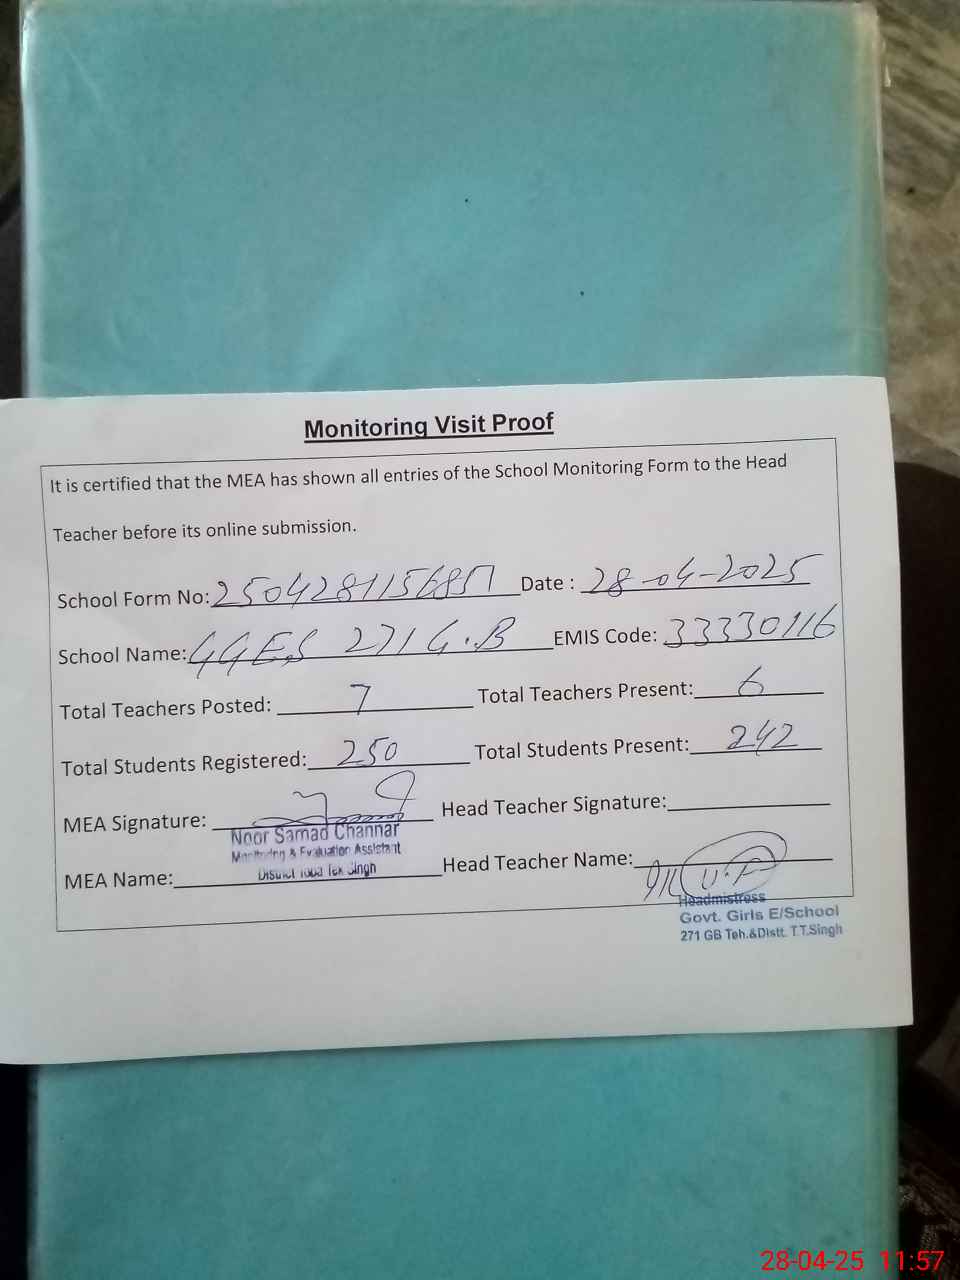 Monitoring Visit Proof
It is certified that the MEA has shown all entries of the School Monitoring Form to the Head
Teacher before its online submission.
School Form No: Date : 28-04-2025
School Name: GGES 271 G.B EMIS Code: 33330116
Total Teachers Posted: 7 Total Teachers Present: 6
Total Students Registered: 250 Total Students Present: 242
MEA Signature: Head Teacher Signature:
Noor Samad Channar
Monitoring & Evaluation Assistant
District Toba Tek Singh
MEA Name: Head Teacher Name:
Headmistress
Govt. Girls E/School
271 GB Teh.&Distt. T.T.Singh
28-04-25 11:57